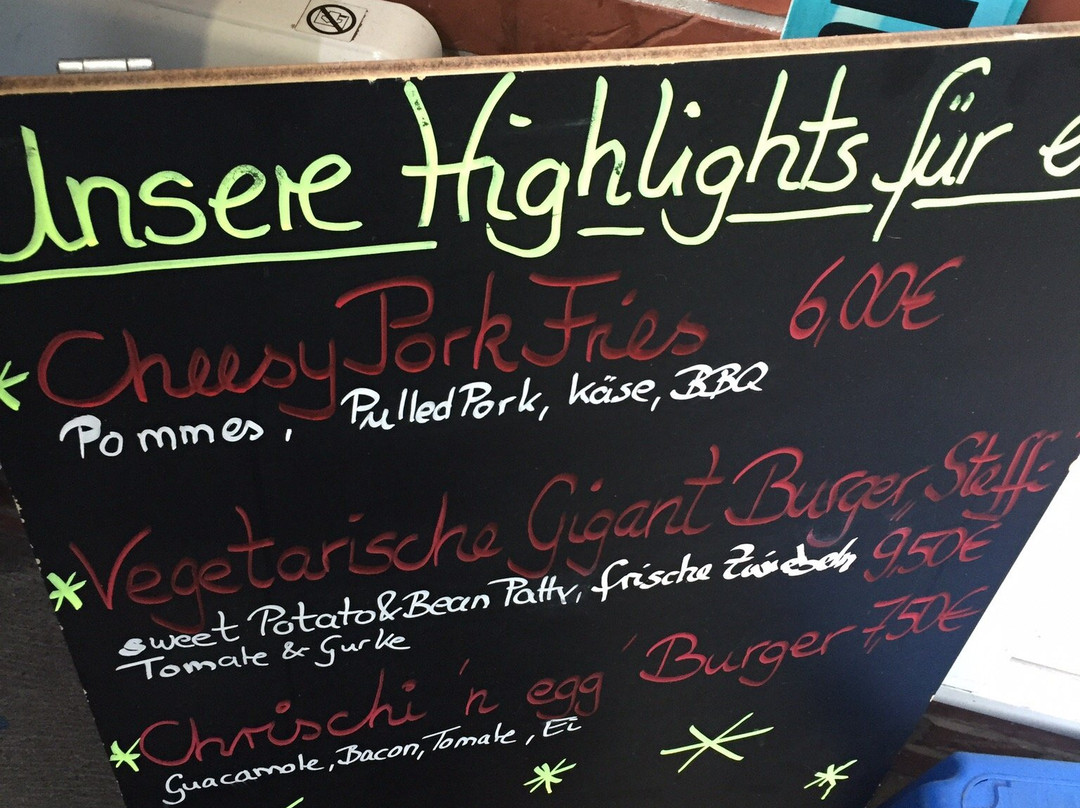 Unsere Highlights für e
Cheesy Pork Fries 6,00€
Pommes, Pulled Pork, Käse, BBQ
Vegetarische Gigant Burger „Steffi
sweet Potato & Bean Patty, frische Zwiebeln 9,50€
Tomate & Gurke
Chrischi 'n egg' Burger 7,50€
Guacamole, Bacon, Tomate, Ei